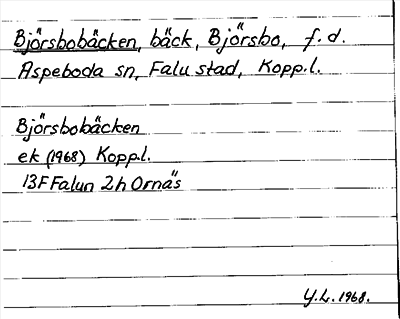 Björsbobäcken, bäck, Björsbo, f.d.
Aspeboda sn, Falu stad, Kopp.l.
Björsbobäcken
ek (1968) Kopp.l.
13F Falun 2h Ornäs
Y.L. 1968.